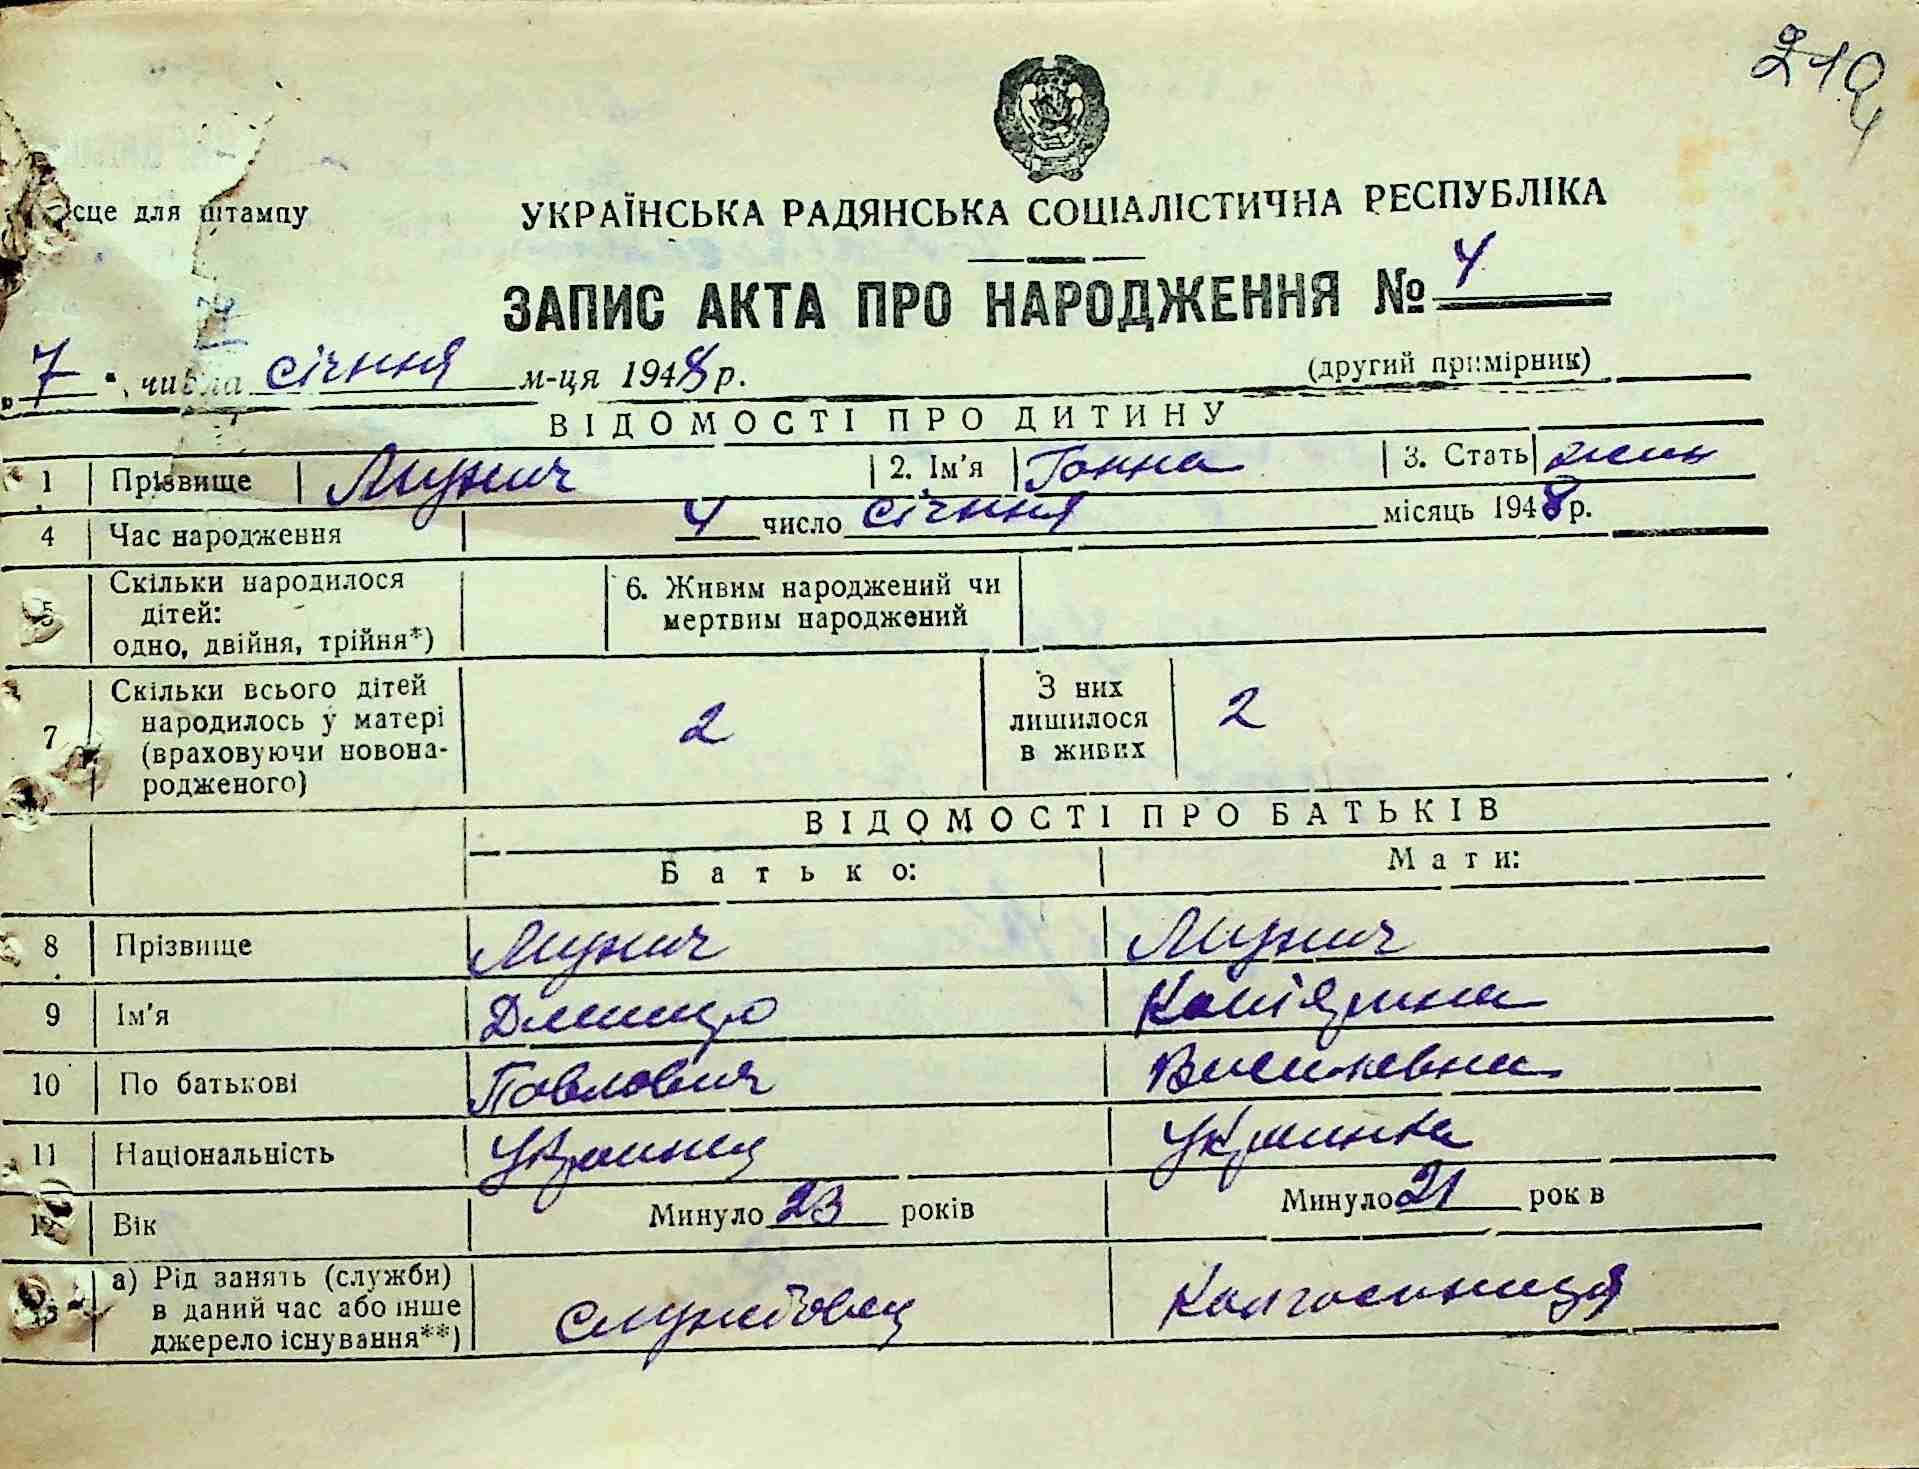 219
сце для штампу
УКРАЇНСЬКА РАДЯНСЬКА СОЦІАЛІСТИЧНА РЕСПУБЛІКА
ЗАПИС АКТА ПРО НАРОДЖЕННЯ № 4
„7" числа січння м-ця 1948 р.
(другий примірник)
ВІДОМОСТІ ПРО ДИТИНУ
1 Прізвище Мужич 2. Ім'я Ганна 3. Стать жін
4 Час народження 4 число січння місяць 1948 р.
5 Скільки народилося дітей: одно, двійня, трійня*) 6. Живим народжений чи мертвим народжений
7 Скільки всього дітей народилось у матері (враховуючи новонародженого) 2 З них лишилося в живих 2
ВІДОМОСТІ ПРО БАТЬКІВ
Батько: Мати:
8 Прізвище Мужич Мужич
9 Ім'я Дмитро Катірина
10 По батькові Павлович Василевна
11 Національність Українец Українка
12 Вік Минуло 23 років Минуло 21 рок в
13 а) Рід занять (служби) в даний час або інше джерело існування**) службовец Колгоспниця